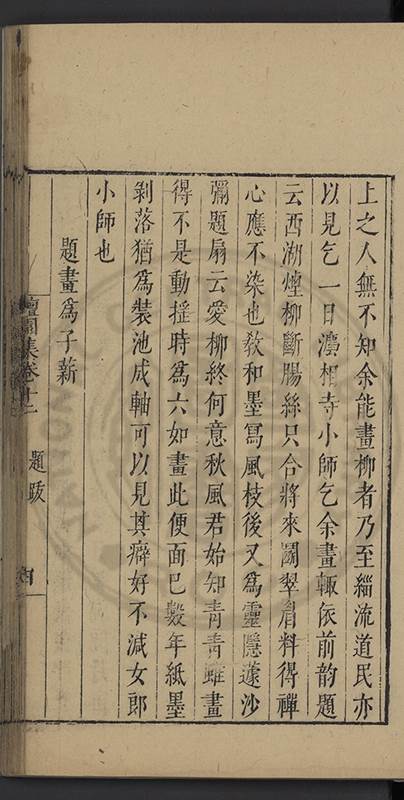 上之人無不知余能畫柳者乃至緇流道民亦
以見乞一日瀍相寺小師乞余畫輙依前韵題
云西湖煙柳斷腸絲只合將來鬭翠眉料得禪
心應不染也敎和墨寫風枝後又為靈隱蘧沙
彌題扇云愛柳終何意秋風君始知青青雖畫
得不是動搖時為六如畫此便面已數年紙墨
剝落猶為裝池成軸可以見其癖好不減女郎
小師也
題畫為子薪
檀園集卷十二
題跋
四